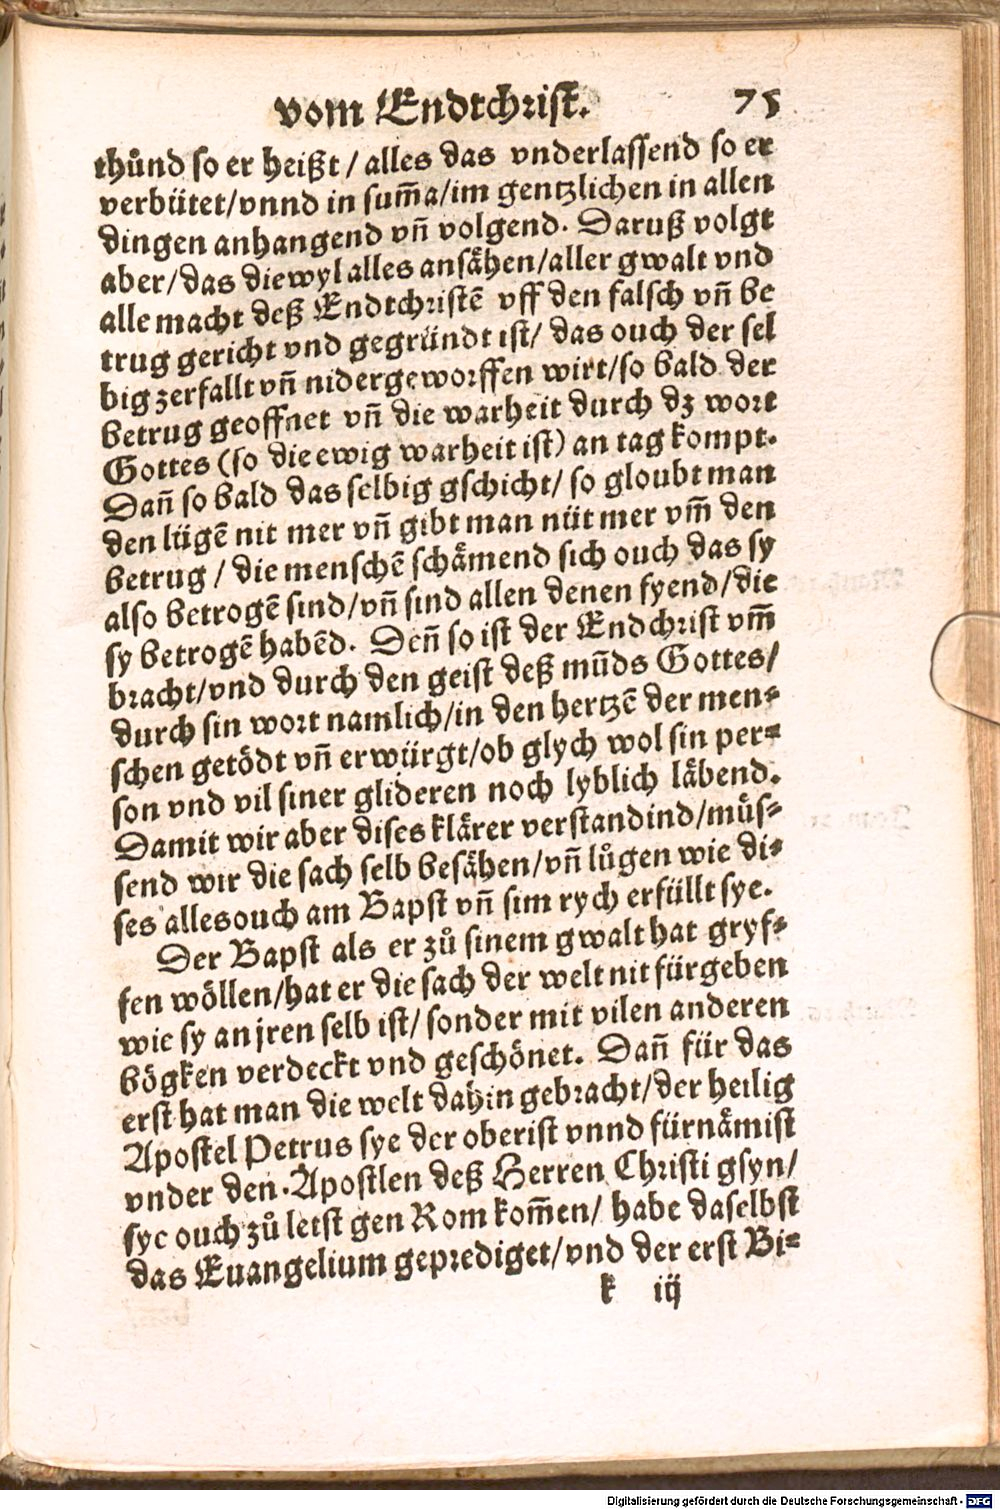 vom Endtchrist. 75
thůnd so er heißt / alles das vnderlassend so er
verbütet/vnnd in sum̃a/im gentzlichen in allen
dingen anhangend vñ volgend. Daruß volgt
aber/das diewyl alles ansåhen/aller gwalt vnd
alle macht deß Endtchristẽ vff den falsch vñ be
trug gericht vnd gegründt ist/ das ouch der sel
big zerfallt vñ nidergeworffen wirt/so bald der
betrug geoffnet vñ die warheit durch dz wort
Gottes (so die ewig warheit ist) an tag kompt.
Dañ so bald das selbig gschicht/ so gloubt man
den lügẽ nit mer vñ gibt man nüt mer vm̃ den
betrug / die menschẽ schåmend sich ouch das sy
also betrogẽ sind/vñ sind allen denen fyend/die
sy betrogẽ habẽd. Deñ so ist der Endchrist vm̃
bracht/vnd durch den geist deß mũds Gottes/
durch sin wort namlich/in den hertzẽ der men⸗
schen getödt vñ erwürgt/ob glych wol sin per⸗
son vnd vil siner glideren noch lyblich låbend.
Damit wir aber dises klårer verstandind/müs⸗
send wir die sach selb besåhen/vñ lůgen wie di⸗
ses alles ouch am Bapst vñ sim rych erfüllt sye.
Der Bapst als er zů sinem gwalt hat gryf⸗
fen wöllen/hat er die sach der welt nit fürgeben
wie sy an jren selb ist/ sonder mit vilen anderen
bögken verdeckt vnd geschönet. Dañ für das
erst hat man die welt dahin gebracht/der heilig
Apostel Petrus sye der oberist vnnd fürnåmist
vnder den Apostlen deß Herren Christi gsyn/
sye ouch zů letst gen Rom kom̃en/ habe daselbst
das Euangelium geprediget/vnd der erst Bi⸗
k iij
Digitalisierung gefördert durch die Deutsche Forschungsgemeinschaft - DFG